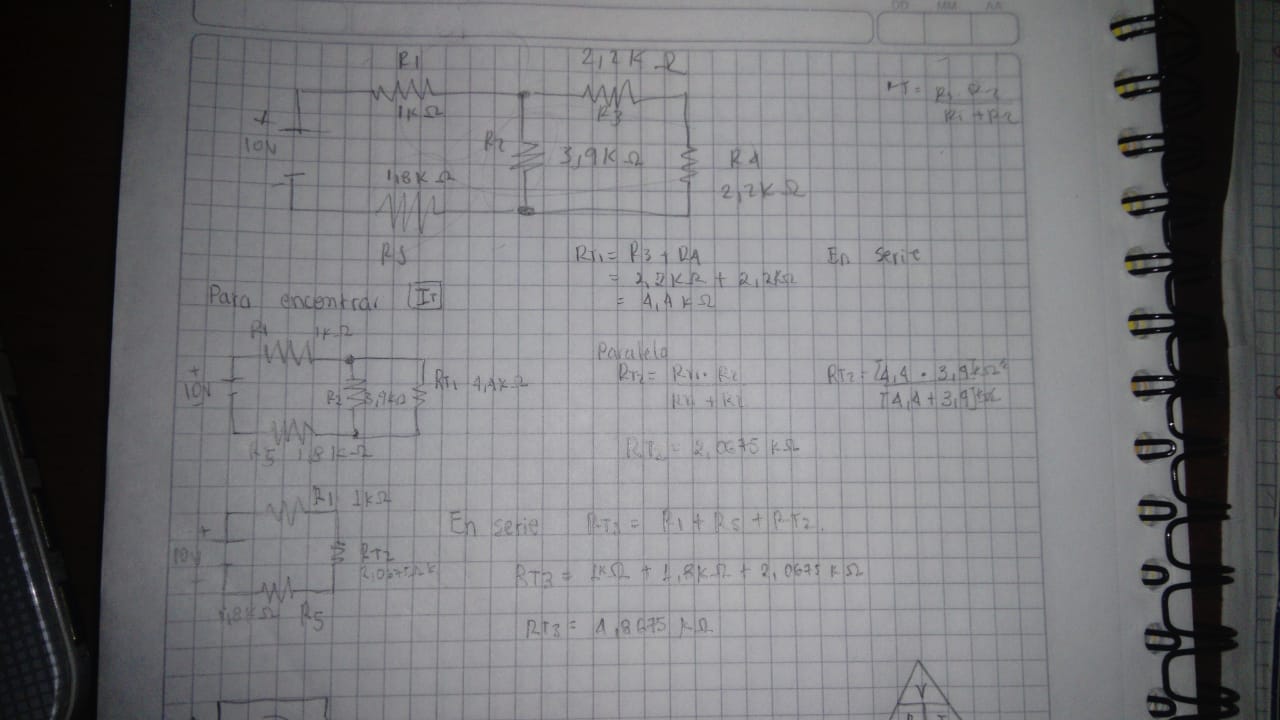 DD MM AA
R1 2,2K Ω
1KΩ R3
+
10V
R2 3,9KΩ R4
2,2KΩ
1,8KΩ
R5
RT = R1 · R2
R1 + R2
RT1 = R3 + R4 En serie
= 2,2KΩ + 2,2KΩ
= 4,4KΩ
Para encontrar IT
R1 1KΩ
+
10V
R2 3,9KΩ RT1 4,4KΩ
R5 1,8KΩ
Paralelo
RT2 = RT1 · R2
RT1 + R2
RT2 = [4,4 · 3,9]KΩ²
[4,4 + 3,9]KΩ
RT2 = 2,0675 KΩ
R1 1KΩ
+
10V
RT2
2,0675ΩK
1,8KΩ R5
En serie RT3 = R1 + R5 + RT2.
RT3 = 1KΩ + 1,8KΩ + 2,0675 KΩ
RT3 = 4,8675 KΩ
V
R I